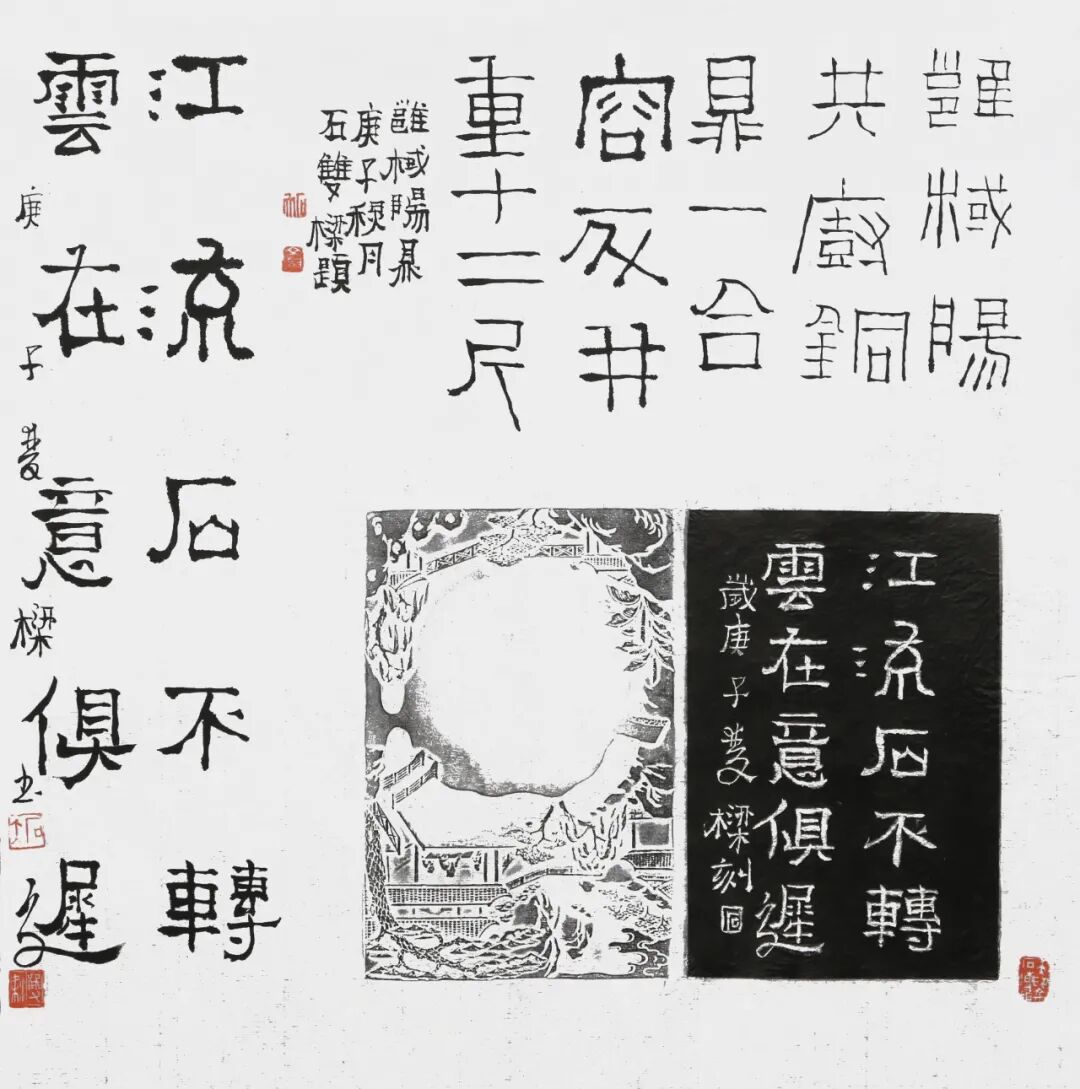 雝棫陽
共廚銅
鼎一合
容一斗并
重十二斤
雝棫陽鼎
庚子秋月
石雙樑題
江流石不轉
雲在意俱遲
庚子雙樑书
江流石不轉
雲在意俱遲
歲庚子雙樑刻